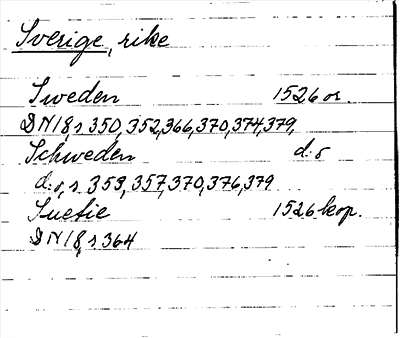 Sverige, rike
Sweden 1526 or.
DN 18, s 350, 352, 366, 370, 374, 379,
Schweden d:o
d:o, s. 353, 357, 370, 376, 379
Suetie 1526 kop.
DN 18, s. 364